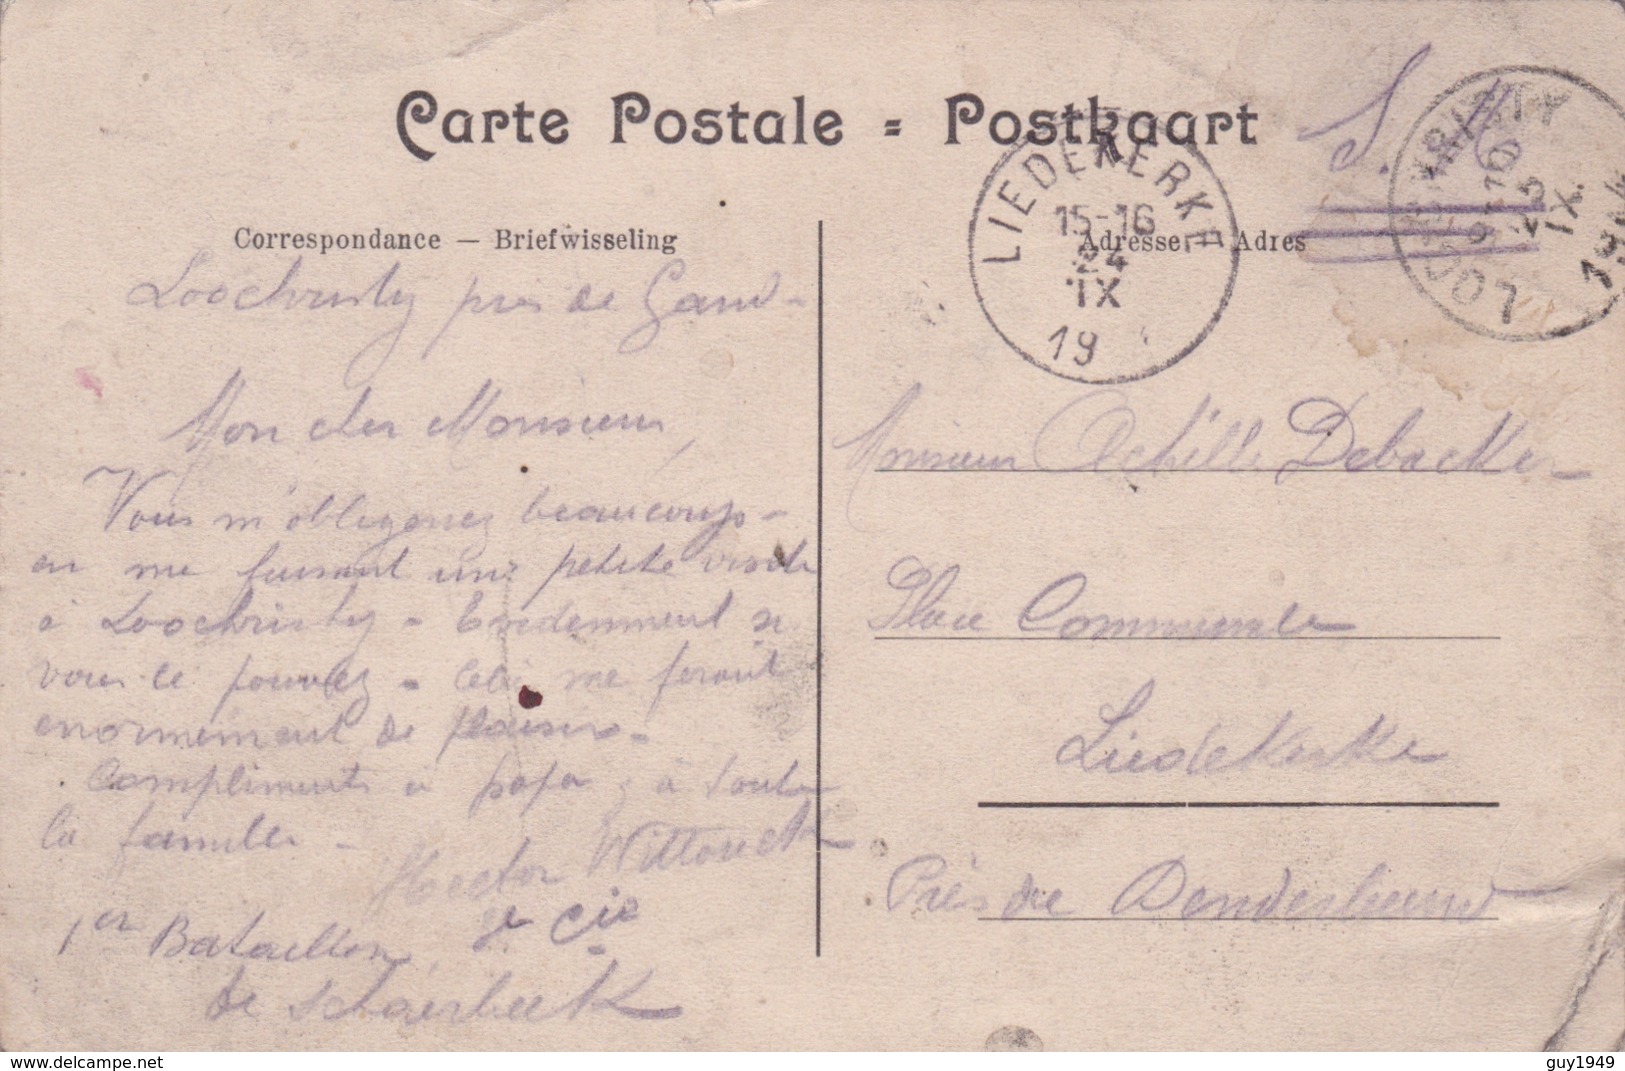 Carte Postale = Postkaart
S. M.
LOOCHRISTY
22
IX
1914
LIEDEKERKE
15-16
24
IX
19
Correspondance — Briefwisseling
Adresse — Adres
Loochristy près de Gand -
Mon cher Monsieur,
Vous m'obligerez beaucoup -
en me faisant une petite visite
à Loochristy - Evidemment si
vous le pouvez - Cela me ferait
enormement de plaisir -
Compliments à papa, à toute
la famille -
Hector Wittouck
1er Bataillon, Cie
de Schaerbeek
Monsieur Achille Debacker -
Place Communale
Liedekerke
Près de Denderleeuw
guy1949